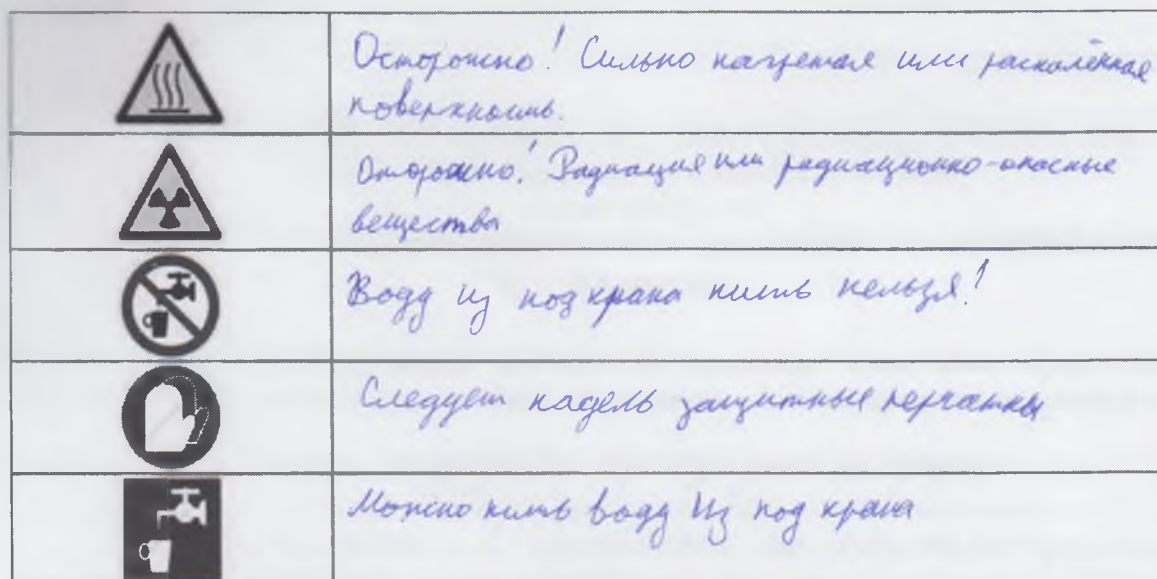 Осторожно! Сильно нагретая или раскалённая
поверхность.
Осторожно! Радиация или радиационно-опасные
вещества
Воду из под крана пить нельзя!
Следует надель защитные перчатки
Можно пить воду Из под крана